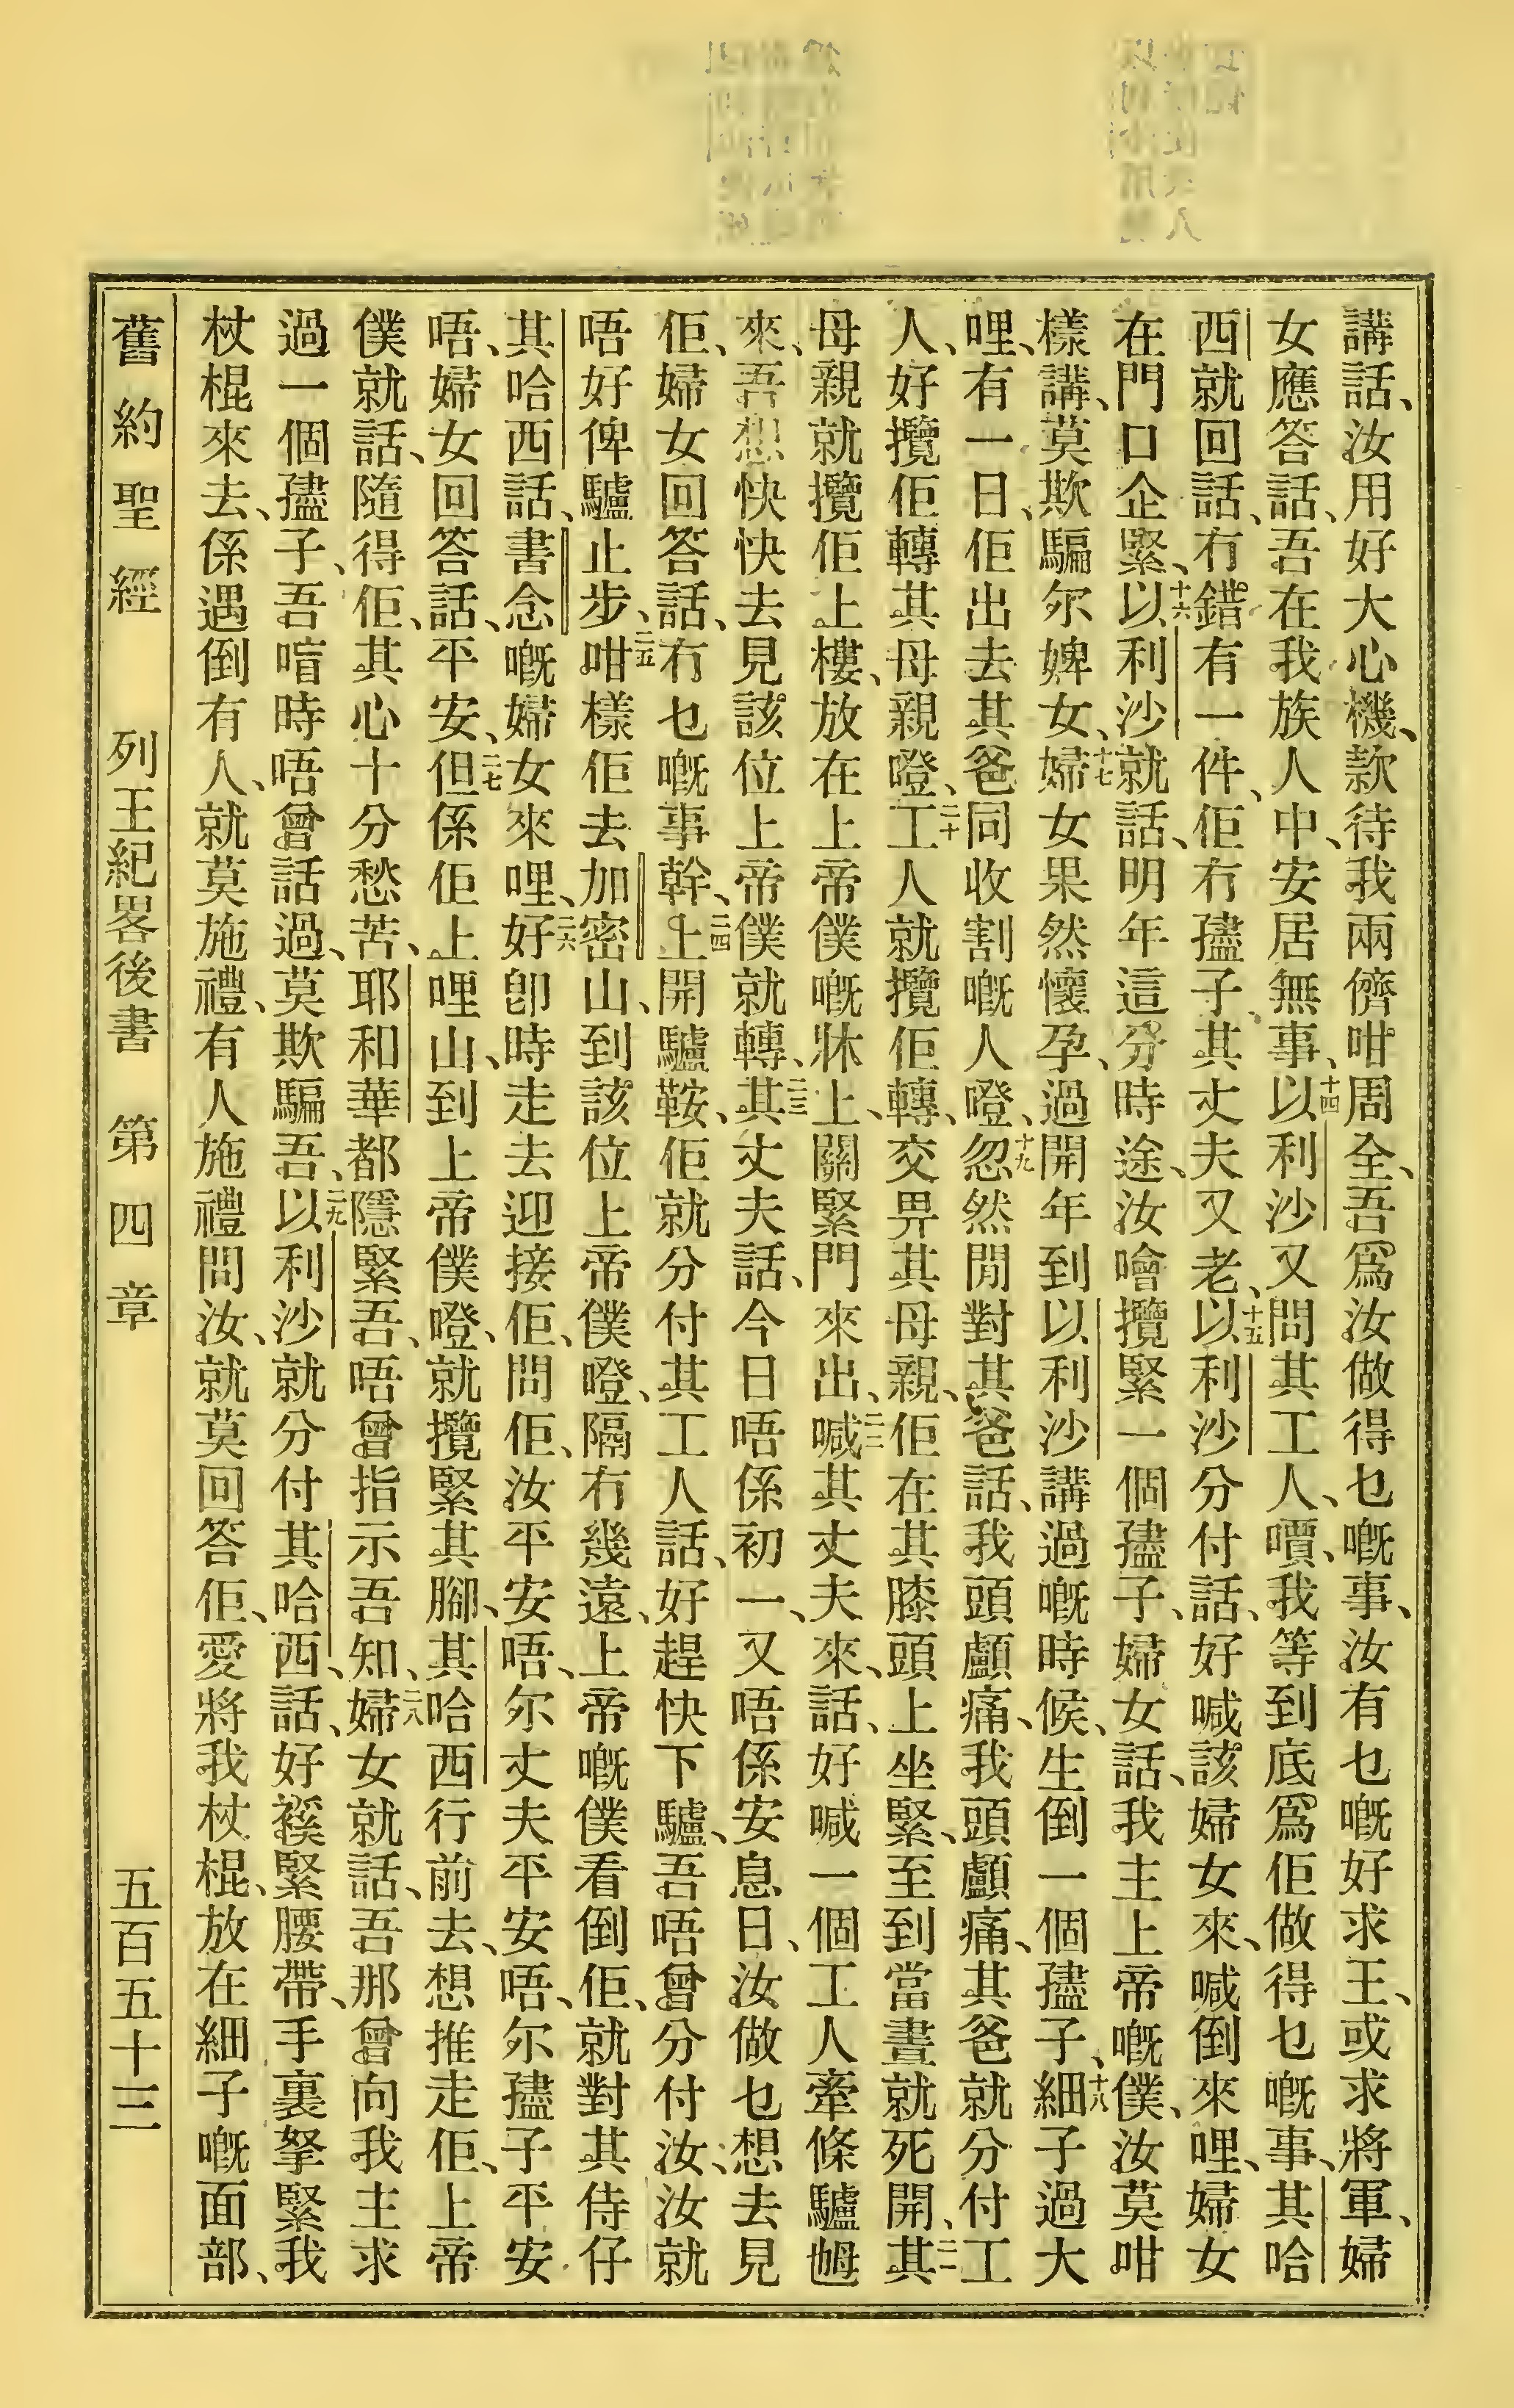 講話、汝用好大心機、款待我兩儕咁周全、吾爲汝做得乜嘅事、汝有乜嘅好求王、或求將軍、婦
女應答話、吾在我族人中、安居無事、十四以利沙又問其工人、嘪、我等到底爲佢做得乜嘅事、其哈
西就回話、冇錯、有一件、佢冇孻子、其丈夫又老、十五以利沙分付話、好喊該婦女來、喊倒來哩、婦女
在門口企緊、十六以利沙就話、明年這分時途、汝噲攬緊一個孻子、婦女話、我主上帝嘅僕、汝莫咁
樣講、莫欺騙尔婢女、十七婦女果然懷孕、過開年到以利沙講過嘅時候、生倒一個孻子、十八細子過大
哩、有一日、佢出去其爸同收割嘅人嶝、十九忽然閒對其爸話、我頭顱痛、我頭顱痛、其爸就分付工
人、好攬佢轉其母親嶝、二十工人就攬佢轉、交畀其母親、佢在其膝頭上坐緊、至到當晝就死開、二一其
母親就攬佢上樓、放在上帝僕嘅牀上、關緊門來出、二二喊其丈夫來、話、好喊一個工人牽條驢乸
來、吾想快快去見該位上帝僕就轉、二三其丈夫話、今日唔係初一、又唔係安息日、汝做乜想去見
佢、婦女回答話、冇乜嘅事幹、二四上開驢鞍、佢就分付其工人話、好趕快下驢、吾唔曾分付汝、汝就
唔好俾驢止步、二五咁樣佢去加密山、到該位上帝僕嶝、隔冇幾遠、上帝嘅僕看倒佢、就對其侍仔
其哈西話、書念嘅婦女來哩、二六好卽時走去迎接佢、問佢、汝平安唔、尔丈夫平安唔、尔孻子平安
唔、婦女回答話、平安、二七但係佢上哩山、到上帝僕嶝、就攬緊其腳、其哈西行前去、想推走佢、上帝
僕就話、隨得佢、其心十分愁苦、耶和華都隱緊吾、唔曾指示吾知、二八婦女就話、吾那曾向我主求
過一個孻子、吾喧時唔曾話過、莫欺騙吾、二九以利沙就分付其哈西、話、好緊腰帶、手裏拏緊我
杖棍來去、係遇倒有人、就莫施禮、有人施禮問汝、就莫回答佢、愛將我杖棍、放在細子嘅面部、
舊約聖經　列王紀畧後書　第四章　五百五十三